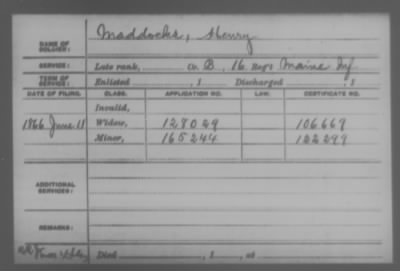 NAME OF SOLDIER: Maddocks, Henry
SERVICE: Late rank, Co. B, 16 Reg't Maine Inf
TERM OF SERVICE: Enlisted , 1 Discharged , 1
DATE OF FILING. CLASS. APPLICATION NO. LAW. CERTIFICATE NO.
Invalid,
1866 June 11 Widow, 128029 106669
Minor, 165244 122299
ADDITIONAL SERVICES:
REMARKS:
Died , 1 , at